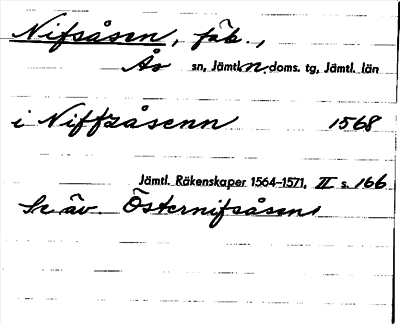 Nifsåsen, fäb.,
Ås sn, Jämtl. n. doms. tg, Jämtl. län
i Niffzåsenn 1568
Jämtl. Räkenskaper 1564–1571, II s. 166
Se äv. Östernifsåsen